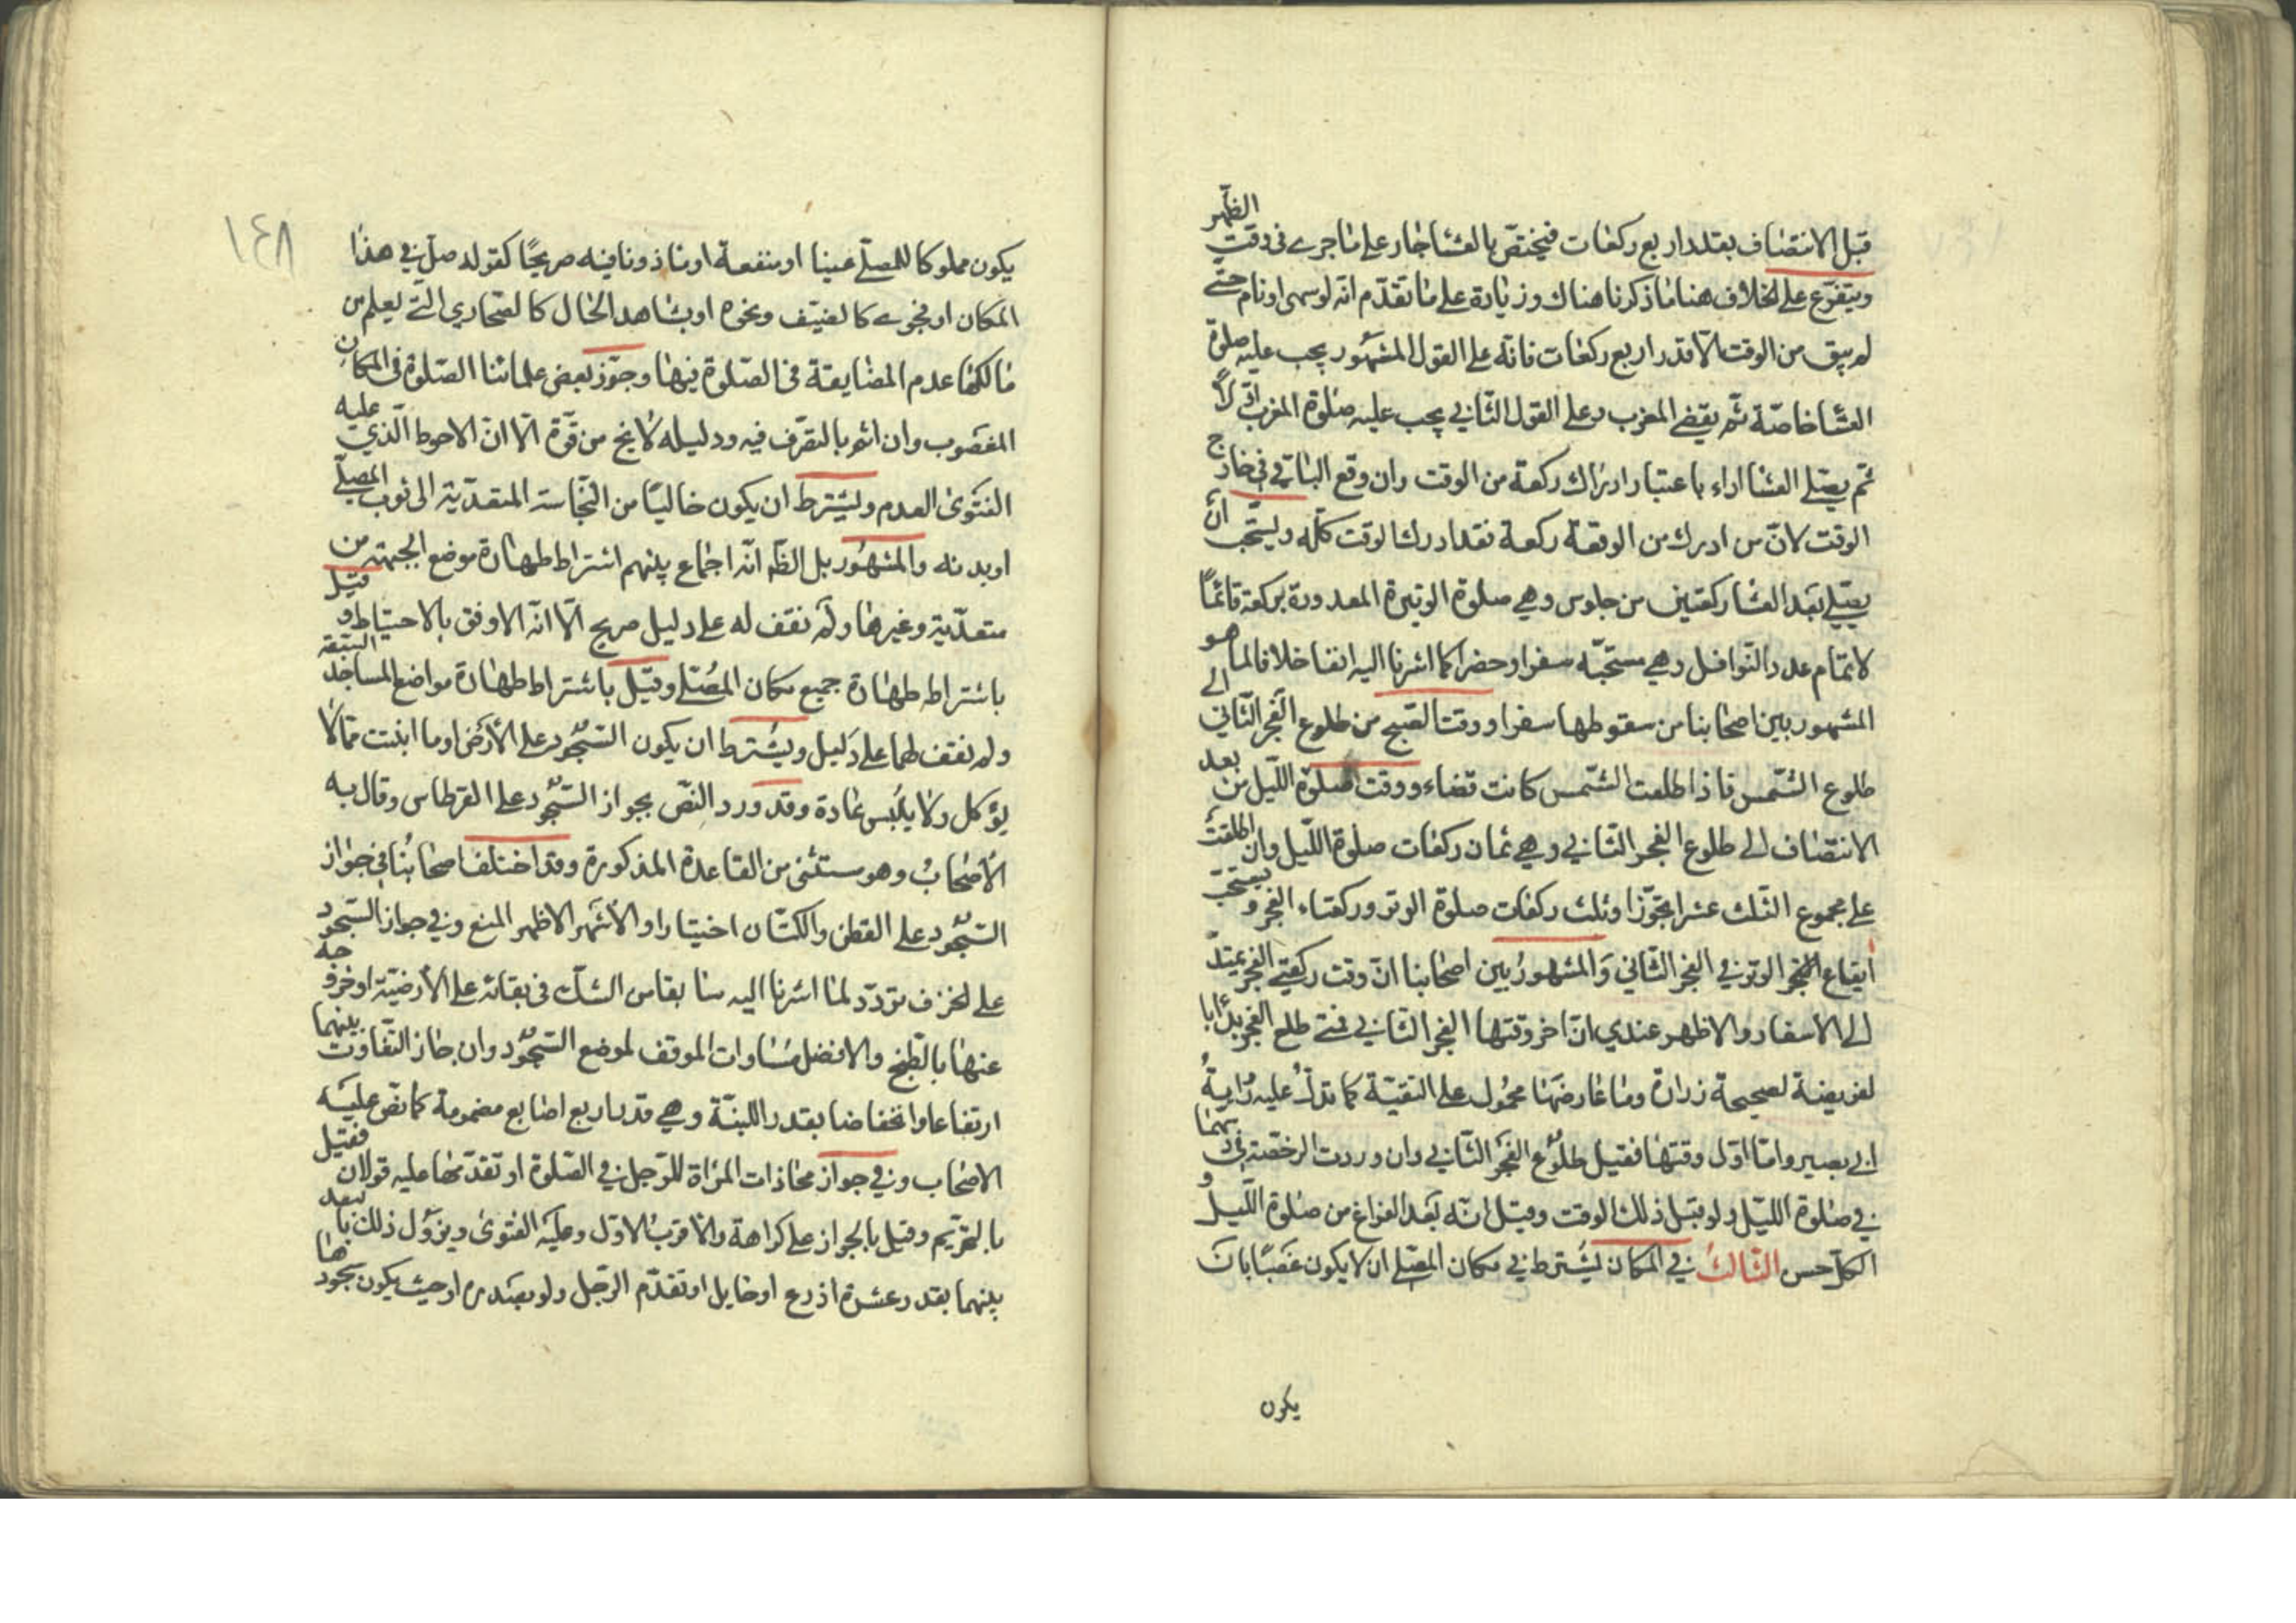 قبل الانتصاف بمقدار اربع ركعات فيختص بالعشا جار على ما جرى في وقت الظهر
ويتفرع على الخلاف هنا ما ذكرنا هناك وزيادة على ما تقدم انه لو سهى او نام حتى
لم يبق من الوقت الا قدر اربع ركعات فانه على القول المشهور يجب عليه صلوة
العشا خاصة ثم يقضي المغرب وعلى القول الثاني يجب عليه صلوة المغرب اولا
ثم يصلي العشا اداء باعتبار ادراك ركعة من الوقت وان وقع الباقي في خارج
الوقت لان من ادرك من الوقت ركعة فقد ادرك الوقت كله ويستحب ان
يصلي بعد العشا ركعتين من جلوس وهي صلوة الوتيرة المعدودة بركعة قائما
لاتمام عدد النوافل وهي مستحبه سفرا وحضرا كما اشرنا اليه انفا خلافا لما هو
المشهور بين اصحابنا من سقوطها سفرا ووقت الصبح من طلوع الفجر الثاني الى
طلوع الشمس فاذا طلعت الشمس كانت قضاء ووقت صلوة الليل من بعد
الانتصاف الى طلوع الفجر الثاني وهي ثمان ركعات صلوة الليل وان اطلقت
على مجموع الثلث عشرا تجوزا وثلث ركعات صلوة الوتر وركعتاء الفجر ويستحب
ايقاع الوتر في الفجر الثاني والمشهور بين اصحابنا ان وقت ركعتي الفجر يمتد
الى الاسفار والاظهر عندي ان اخر وقتها الفجر الثاني فمتى طلع الفجر بدأ با
لفريضة لصحيحة زرارة وما عارضها محمول على التقية كما تدل عليه رواية
ابي بصير واما اول وقتها فقيل طلوع الفجر الثاني وان وردت الرخصة بهما
في صلوة الليل ولو قبل ذلك الوقت وقيل انه بعد الفراغ من صلوة الليل و
الكل حسن الثالث في المكان يشترط في مكان المصلي ان لا يكون غصبا بان
يكون
١٤٨
يكون مملوكا للمصلي عينا او منفعة او ماذونا فيه صريحا كقوله صل في هذا
المكان او فحوى كالضيف ونحوه او بشاهد الحال كالصحاري التي يعلم من
مالكها عدم المضايقة في الصلوة فيها وجوز بعض علمائنا الصلوة في المكان
المغصوب وان اثم بالتصرف فيه ودليله لا يخ من قوة الا ان الاحوط الذي عليه
الفتوى العدم ويشترط ان يكون خاليا من النجاسة المتعدية الى ثوب المصلي
او بدنه والمشهور بل الظ انه اجماع بينهم اشتراط طهارة موضع الجبهة من
متعدية وغيرها ولم نقف له على دليل صريح الا انه الاوفق بالاحتياط وقيل
باشتراط طهارة جميع مكان المصلي وقيل باشتراط طهارة مواضع المساجد السبعة
ولم نقف لهما على دليل ويشترط ان يكون السجود على الارض او ما انبتت مما لا
يؤكل ولا يلبس عادة وقد ورد النص بجواز السجود على القرطاس وقال به
الاصحاب وهو مستثنى من القاعدة المذكورة وقد اختلف اصحابنا في جواز
السجود على القطن والكتان اختيارا والاشهر الاظهر المنع وفي جواز السجود
على الخزف تردد لما اشرنا اليه سابقا من الشك في بقائه على الارضية او خروجه
عنها بالطبخ والافضل مساوات الموقف لموضع السجود وان جاز التفاوت بينهما
ارتفاعا وانخفاضا بقدر اللبنة وهي قدر اربع اصابع مضمومة كما نص عليه
الاصحاب وفي جواز محاذات المراة للرجل في الصلوة او تقدمها عليه قولان فقيل
بالتحريم وقيل بالجواز على كراهة والاقرب الاول وعليه الفتوى ويزول ذلك بالبعد
بينهما بقدر عشرة اذرع او حايل او تقدم الرجل ولو بصدره او حيث يكون سجودها